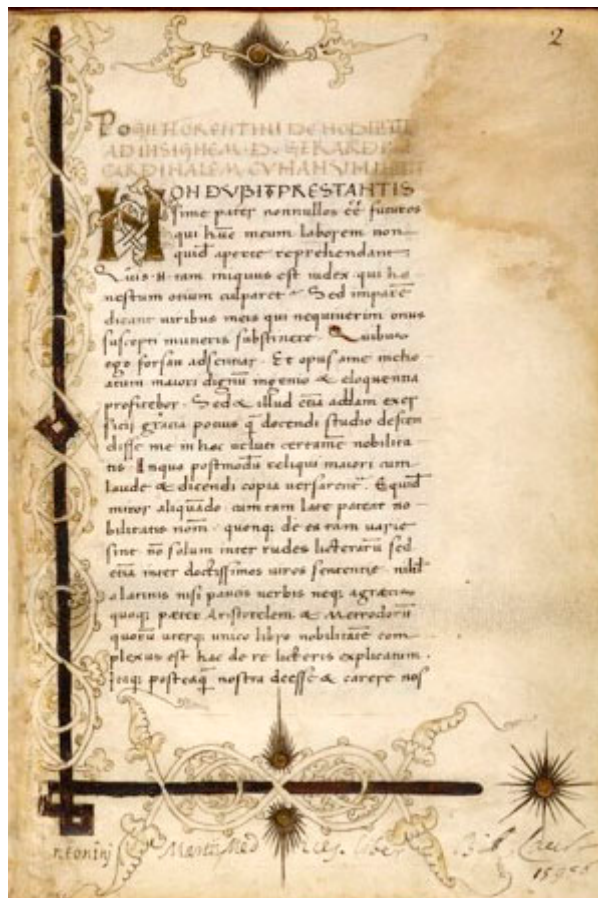 2
POGII FLORENTINI DE NOBILIT
AD INSIGNEM D. GERARDU
CARDINALEM CVMANVM
NON DVBITO PRESTANTIS
sime pater nonnullos eē futuros
qui hūc meum laborem non
quid aperte reprehendant
Quis .n. tam iniquus est iudex qui ho
nestum otium culparet Sed imparē
dicant uiribus meis qui nequiuerim onus
suscepti muneris substinere. Quibus
ego forsan adsentiar. Et opus a me incho
atum maiori dignū ingenio & eloquentia
profitebor. Sed & illud etiā addam exer
ticii gracia potius q̄ docendi studio descen
disse me in hac ueluti certamē nobilita
tis. Inquo postmodū reliqui maiori cum
laude & dicendi copia uersarent. Equidē
miror aliquādo cum tam late pateat no
bilitatis nom̄ quonq; de ea tam uarie
sint nō solum inter rudes litterarū sed
etiā inter doctissimos uiros sententie nihil
a latinis nisi paucis uerbis neq; a grecis
quoq; preter Aristotelem & Metrodorū
quorū uterq; unico libro nobilitatē com
plexus est hac de re litteris explicatum.
Itaq; posteaq̄ nostra deesse & carere nos
Antonini Martii Med liber
15955